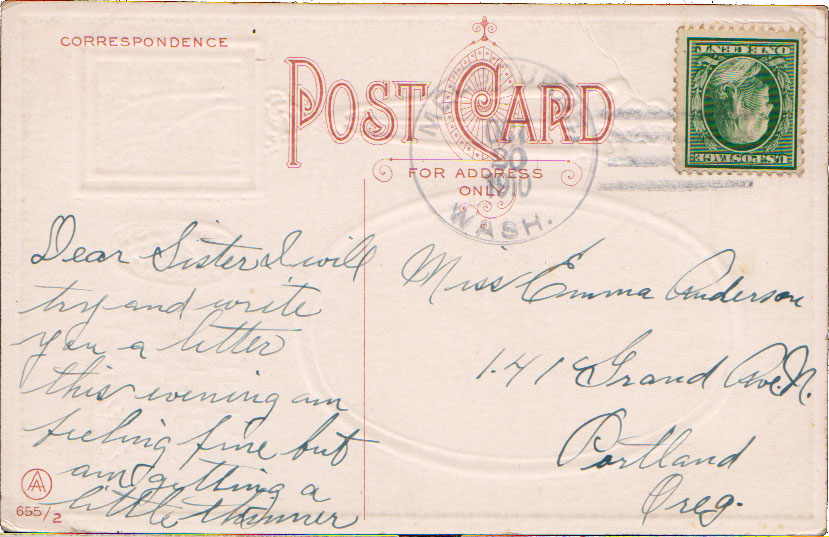 CORRESPONDENCE
POST CARD
FOR ADDRESS
ONLY
ONE CENT
U.S. POSTAGE
20
1910
WASH.
Dear Sister I will
try and write
you a letter
this evening am
feeling fine but
am getting a
little thinner
Miss Emma Anderson
141 Grand Ave. N.
Portland
Oreg.
AA
655/2